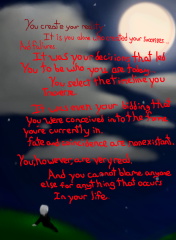 You create your reality.
It is you alone who created your successes...
And failures.
It was your decisions that led
You to be who you are today.
You select the timeline you
Traverse.
It was even your bidding that
You were conceived into the form
you're currently in.
Fate and coincidence are nonexistant.
You, however, are very real.
And you cannot blame anyone
else for anything that occurs
In your life.